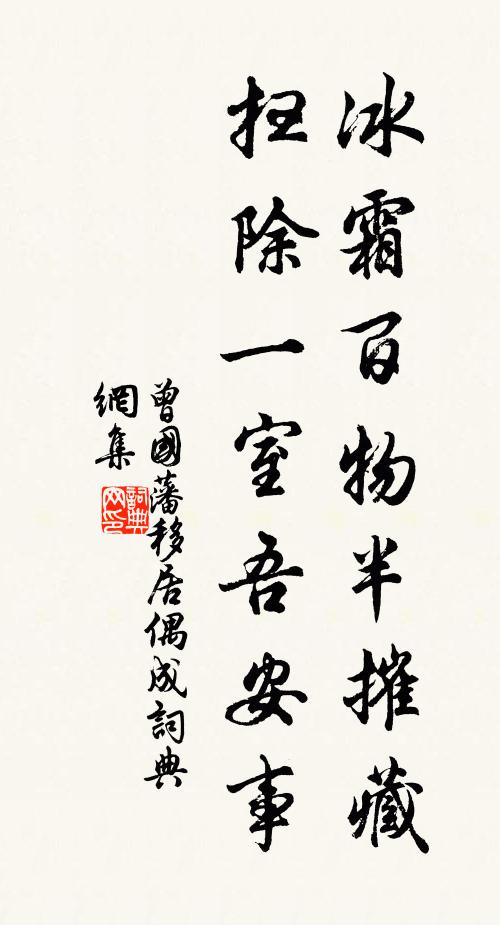 冰霜百物半摧藏
扫除一室吾安事
曾國藩移居偶成詞典
網集
詞典
网印